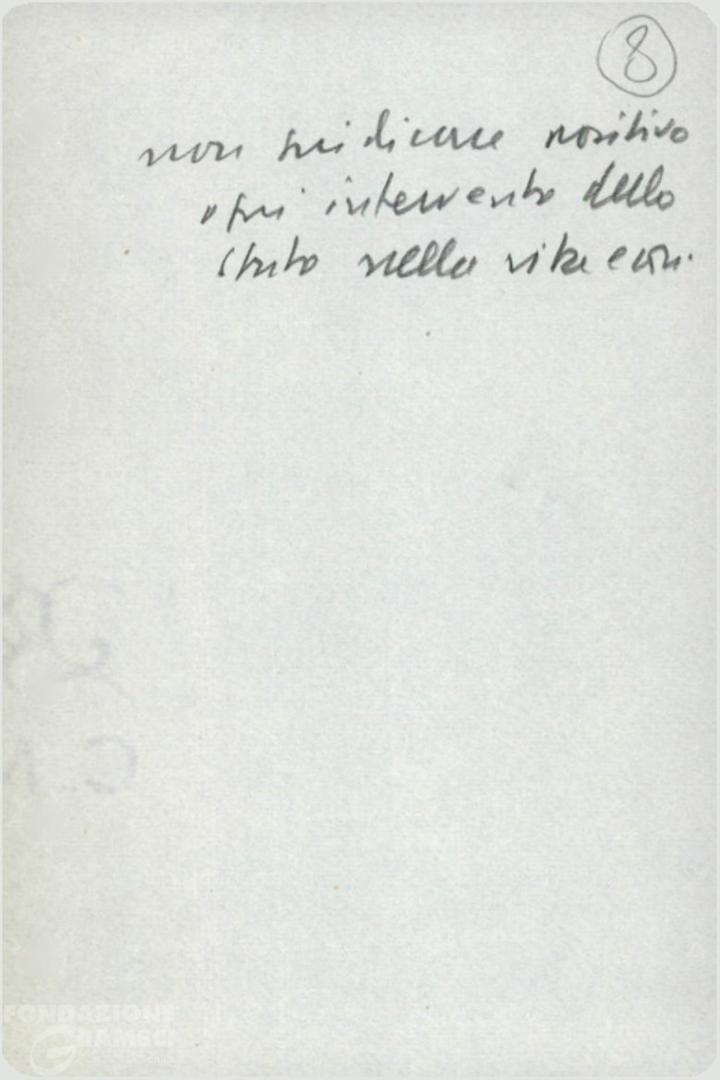 8
non giudicare positivo
ogni intervento dello
stato nella vita econ.
FONDAZIONE
GRAMSCI